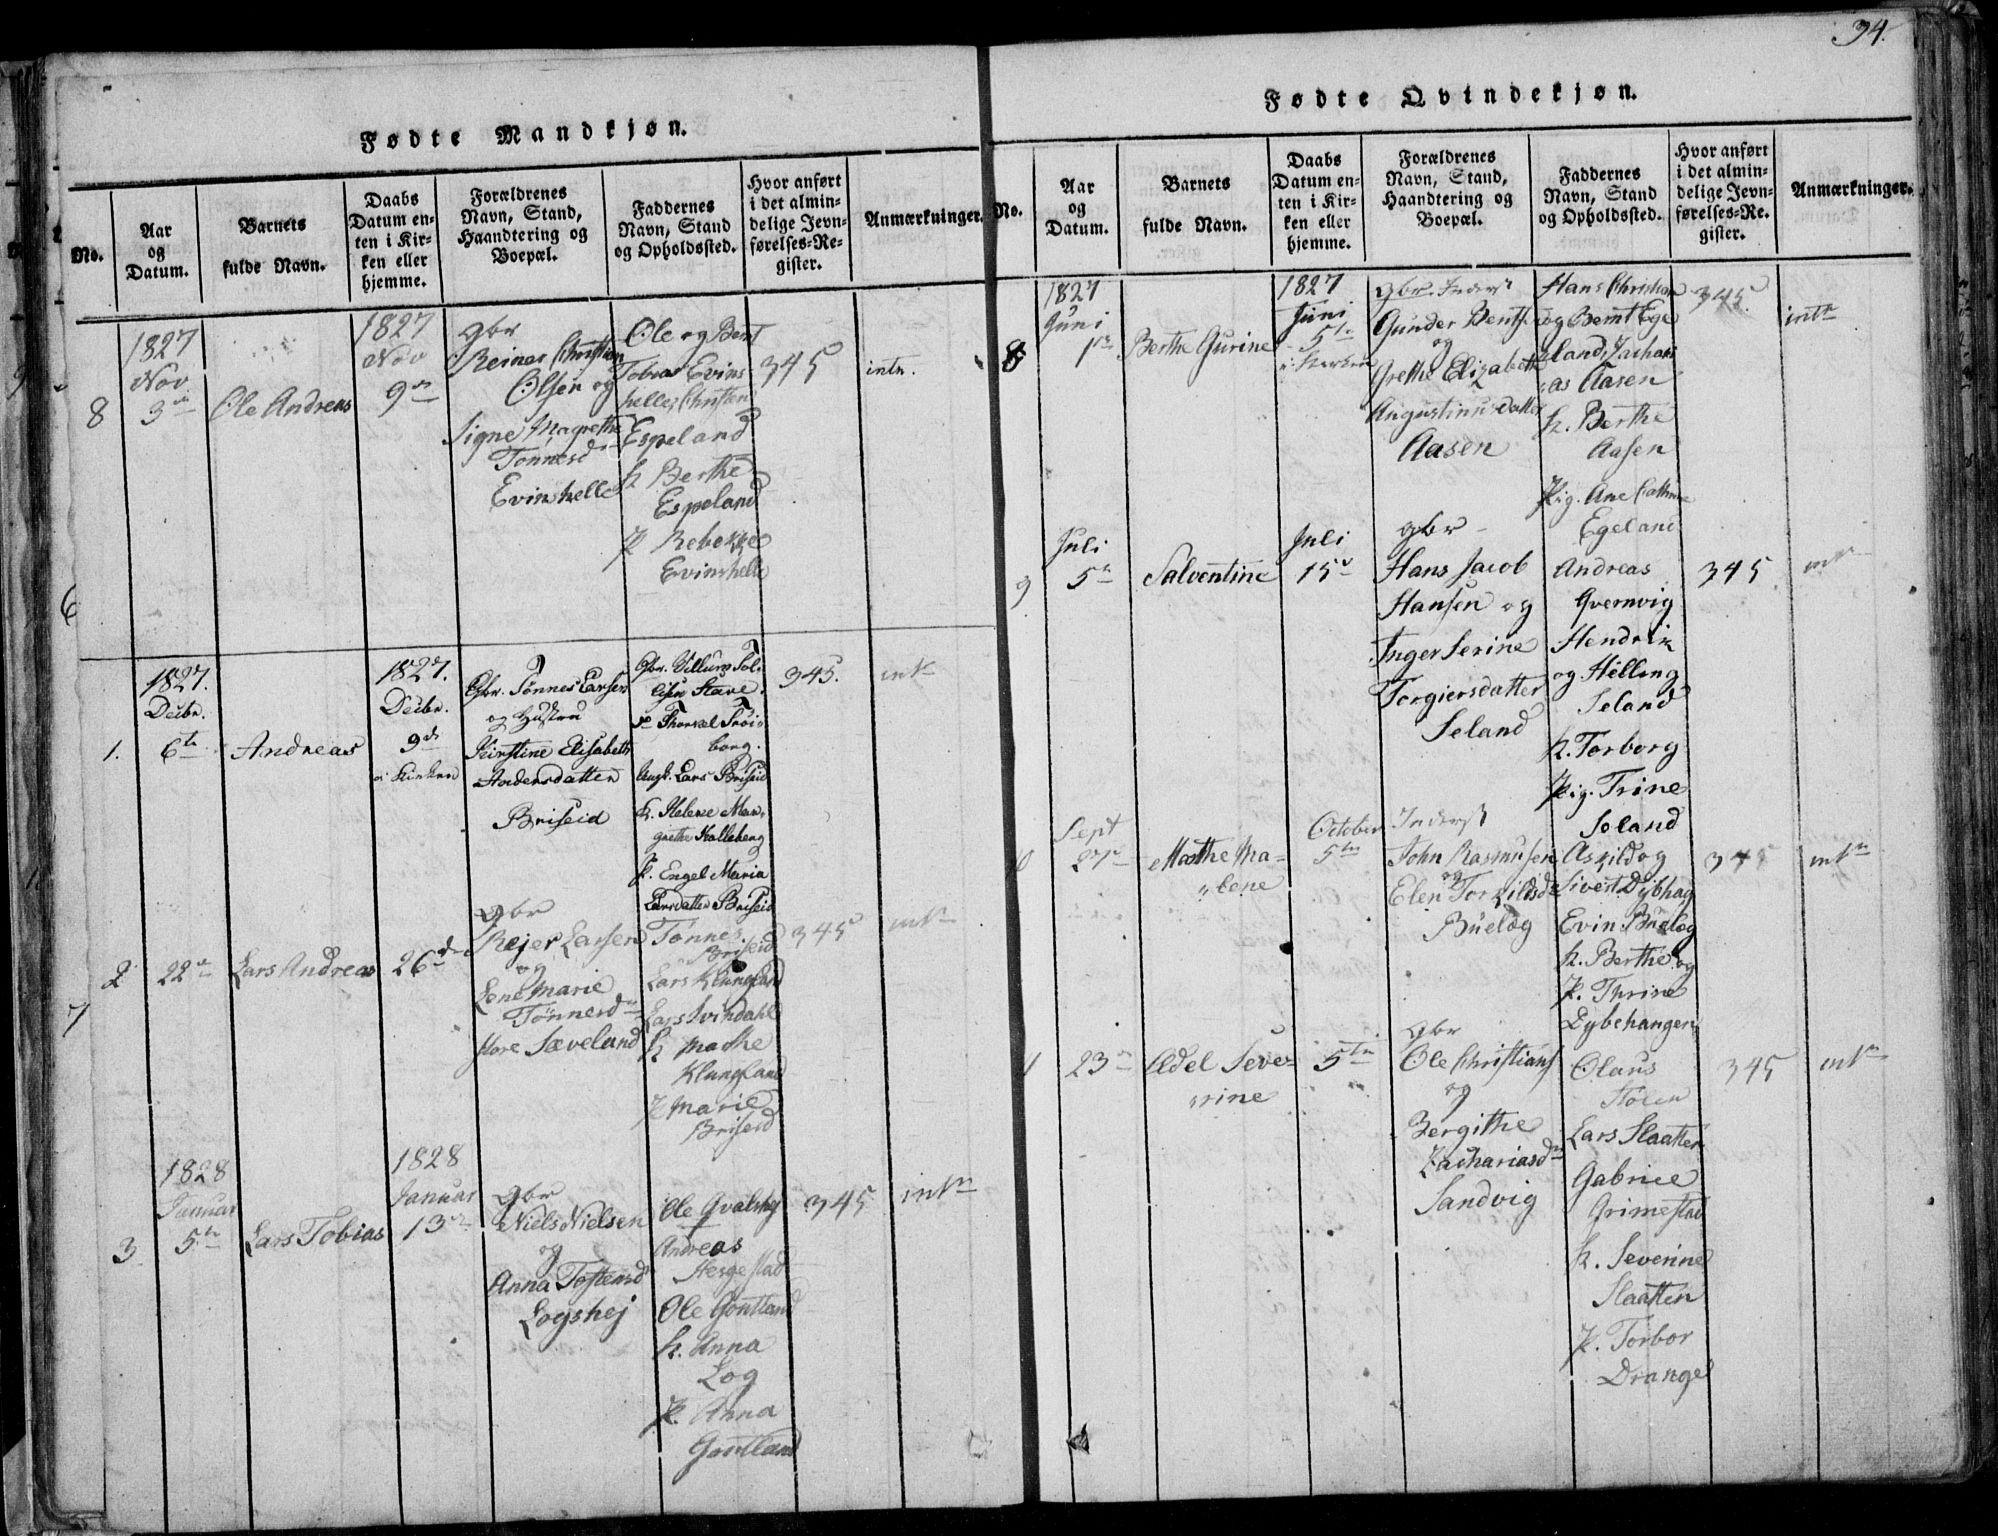 34.
Fødte Mandkjøn.
No.
Aar
og
Datum.
Barnets
fulde Navn.
Daabs
Datum en-
ten i Kir-
ken eller
hjemme.
Forældrenes
Navn, Stand,
Haandtering og
Boepæl.
Faddernes
Navn, Stand
og Opholdssted.
Hvor anført
i det almin-
delige Jevn-
førelses-Re-
gister.
Anmærkninger.
8
1827
Nov
3
Ole Andreas
1827
Nov
9
gbr
Reiner Christian
Olsen og
Signe Magrethe
Tønnesd
Evinshelle
Ole og Bent
Tobias Evins
helle, Christen
Espeland
k Berthe
Espeland
p Rebekke
Evinshelle
345
intn.
6
1.
1827.
Decbr.
6te
Andreas
1827.
Decbr.
9de
i Kirken
Gbr. Tönnes Larsen
og Hustru
Kirstine Elisabeth
Andersdatter
Briseid
Gbr. Villum Tol-
lisen Stave.
Thorval Tröi-
borg.
Ungk. Lars Briseid
k. Helene Mar-
grethe Kalleberg
P. Engel Maria
Larsdatter Briseid
345.
intn
2
22
Lars Andreas
26de
gbr
Rejer Larsen
og
Lene Marie
Tönnesd
store Sæveland
Tönnes
Briseid
Lars Klungland
Lars Svindahl
k Mathe
Klungland
p Marie
Briseid
345
intn
7
3
1828
Januar
5te
Lars Tobias
1828
Januar
13
gbr
Niels Nielsen
og
Anna Tostensd
Logshej
Ole Qvalshej
Andreas
Stegestad
Ole Gontland
k. Anna
Log
p. Anna
Gontland
345
intn
Fødte Qvindekjøn.
No.
Aar
og
Datum.
Barnets
fulde Navn.
Daabs
Datum en-
ten i Kir-
ken eller
hjemme.
Forældrenes
Navn, Stand,
Haandtering og
Boepæl.
Faddernes
Navn, Stand
og Opholdssted.
Hvor anført
i det almin-
delige Jevn-
førelses-Re-
gister.
Anmærkninger.
8
1827
Juni
1
Berthe Gurine
1827
Juni
5te
i Kirken
gbr. Inderst
Gunder Bentsen
og
Grethe Elizabeth
Augustinusdatter
Aasen
Hans Christian
og Bernt Ege
land, Zachari
as Aasen
k. Berthe
Aasen
Pig. Ane Cathrine
Egeland
345
intn
9
Juli
5
Salventine
Juli
15
gbr
Hans Jacob
Hansen og
Inger Serine
Torgiersdatter
Seland
Andreas
Qvernvig
Hendrik
og Helling
Seland
k. Torborg
Pig. Trine
Seland
345
intn
10
Sept
27
Marthe Ma-
lene
October
5te
Inderst
John Rasmusen
og
Elen Torkildsd
Büelog
Askild og
Sivert Dybhag
Evin Büelog
k. Berthe og
p. Thrine
Dybehangen
345
intn
23
Edel Seve-
rine
5te
gbr
Ole Christians
og
Bergithe
Zachariasd
Sandvig
Olaus
Lars Slaatten
Gabriel
Grimestad
k. Severine
Slaatten
p. Torbor
Drange
345
intn